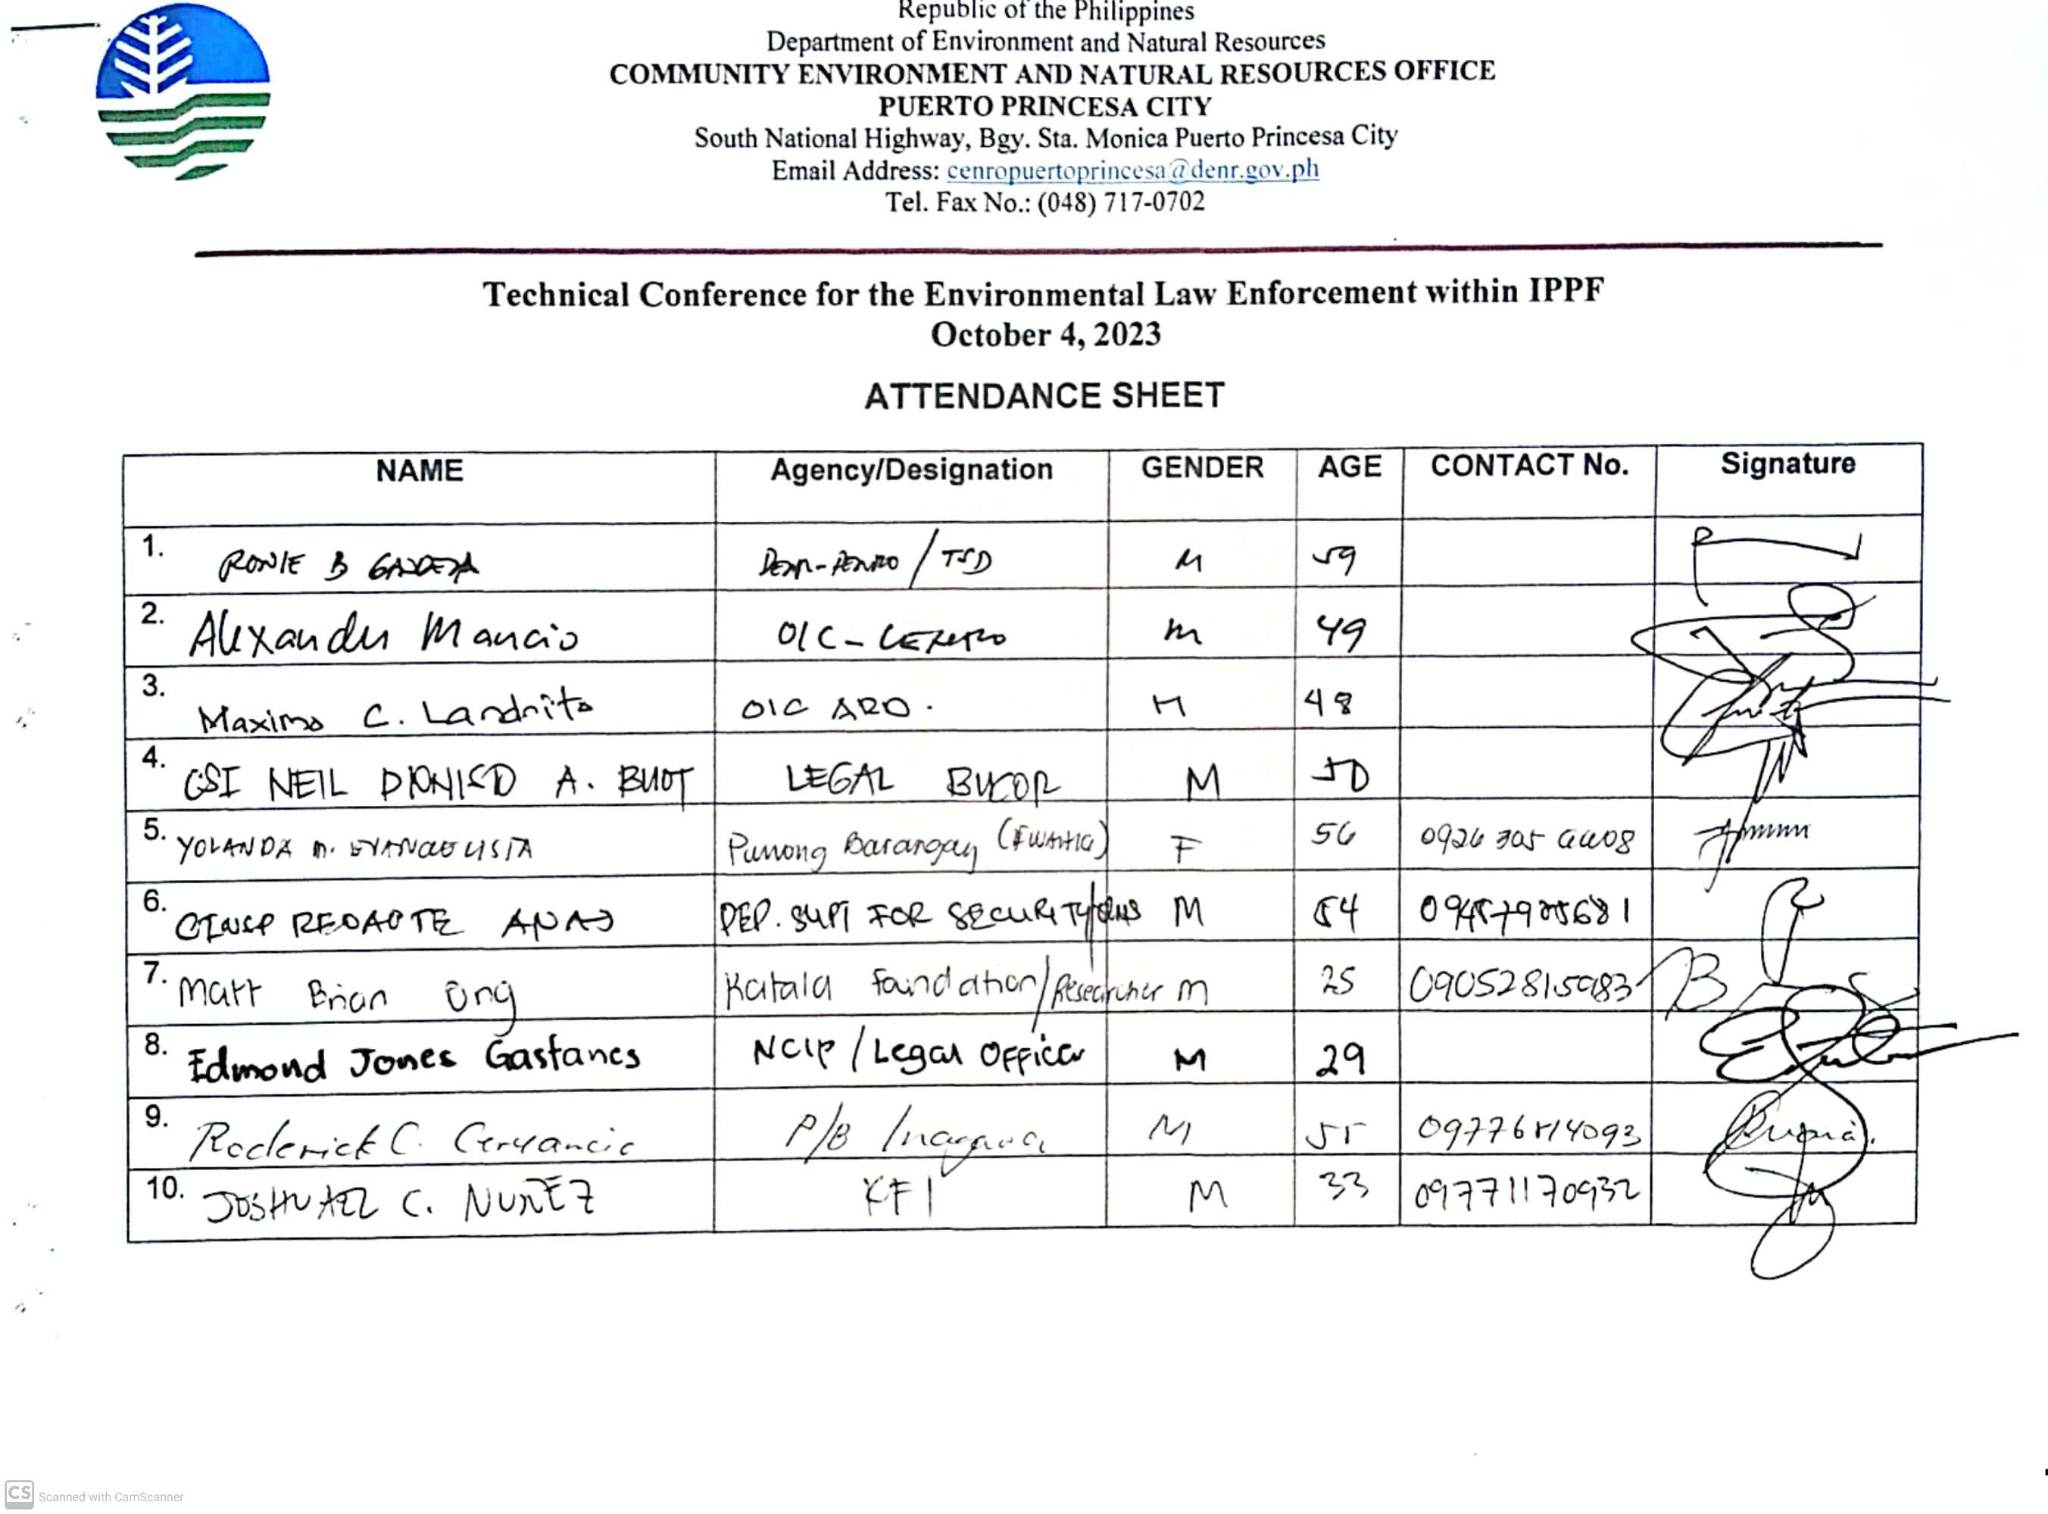 Republic of the Philippines
Department of Environment and Natural Resources
COMMUNITY ENVIRONMENT AND NATURAL RESOURCES OFFICE
PUERTO PRINCESA CITY
South National Highway, Bgy. Sta. Monica Puerto Princesa City
Email Address: cenropuertoprincesa@denr.gov.ph
Tel. Fax No.: (048) 717-0702
Technical Conference for the Environmental Law Enforcement within IPPF
October 4, 2023
ATTENDANCE SHEET
NAME Agency/Designation GENDER AGE CONTACT No. Signature
1. RONIE B GANDEZA DENR-PENRO / TSD M 59
2. Alexander Mancio OIC-CENRO M 49
3. Maximo C. Landrito OIC ARD. M 48
4. CSI NEIL DIONISIO A. BUOT LEGAL BUCOR M 50
5. YOLANDA M. EVANGELISTA Punong Barangay (IWAHIG) F 56 0926 305
6. CINSP DEP. SUPT FOR SECURITY M 54
7. Matt Brian Ong Katala Foundation/Researcher M 25 09052815983
8. Edmond Jones Gastanes NCIP / Legal Officer M 29
9. Roderick C. P/B Inagawan M 55
10. C. NUÑEZ KFI M 33 09771170932
CS Scanned with CamScanner